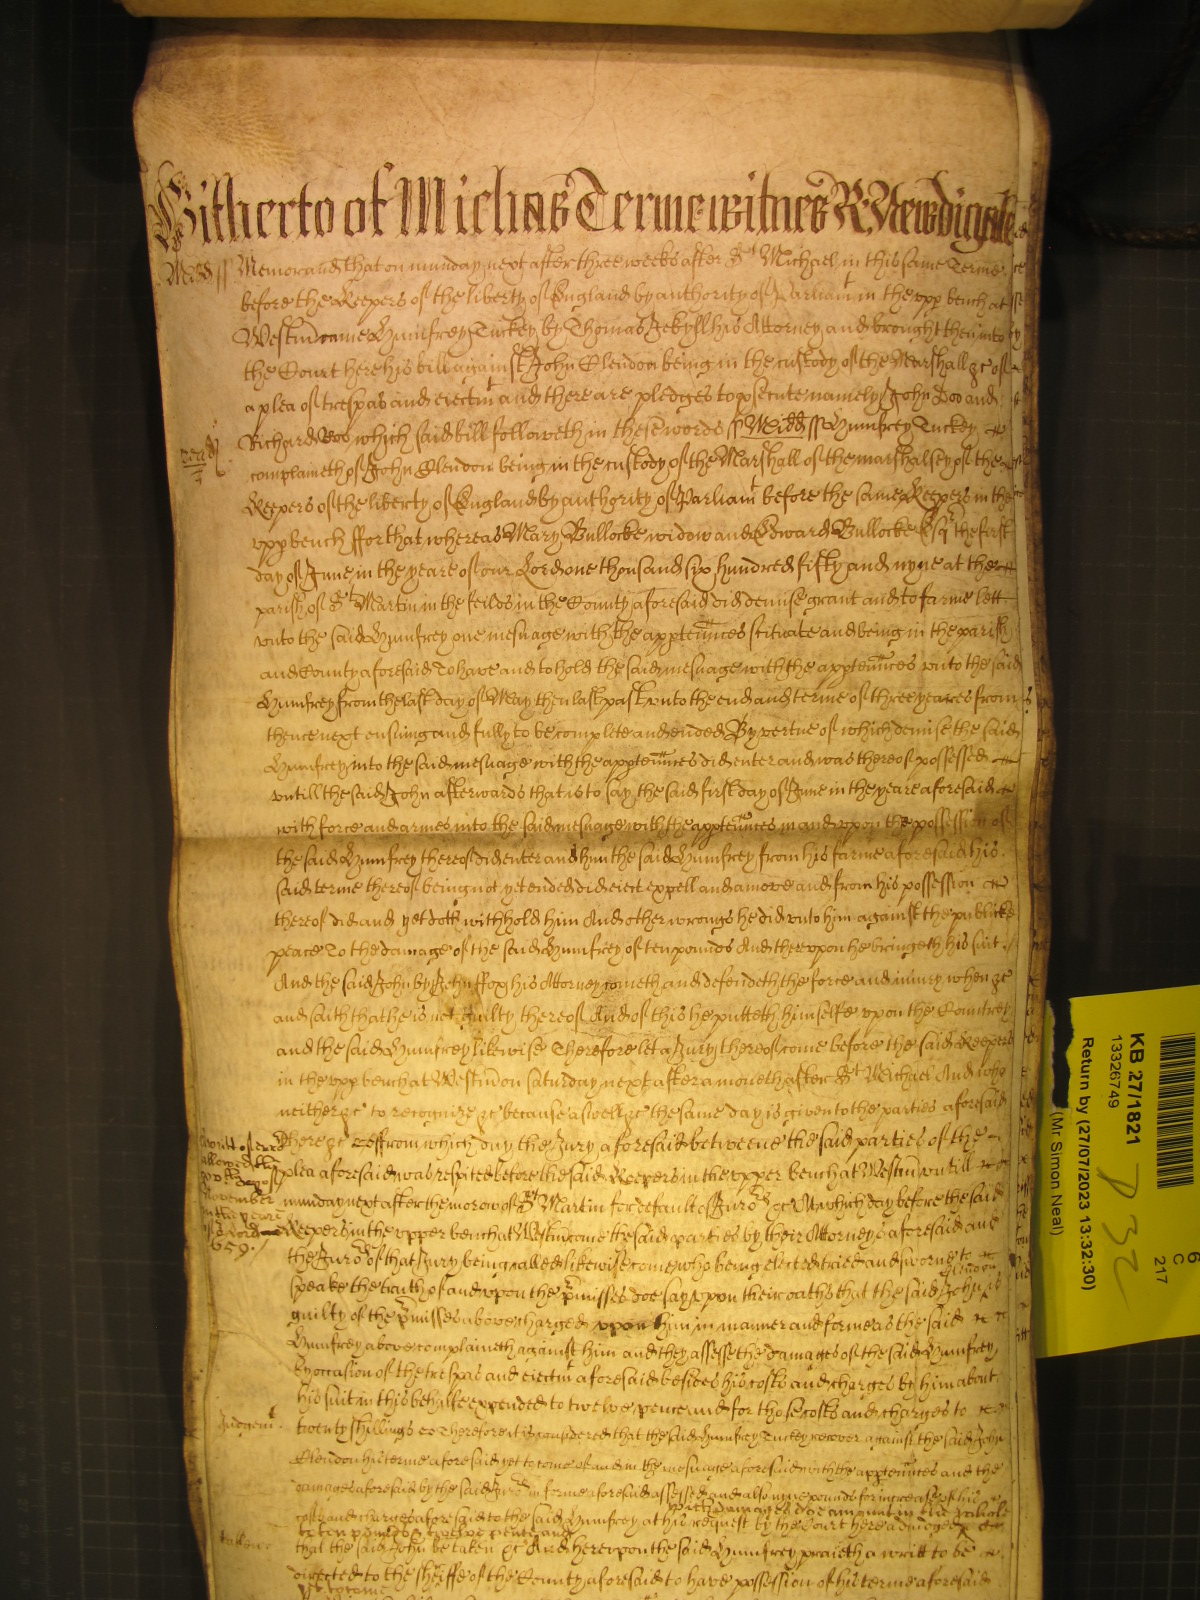 Hitherto of Michās Terme witnes R Newdigate
Midd ss Memorand that on munday next after three weeks after St Michael in this same Terme
before the Keepers of the liberty of England by authority of Parliamt in the vpp bench at
Westm came Humfrey Tuckey by Thomas Jekyll his Attorney and brought then into
the Court here his bill against John Clendon being in the custody of the Marshall &c of
a plea of trespas and eiectmt and there are pledges to prosecute namely John Doo and
Richard Roo which said bill followeth in these words ss Midd ss Humfrey Tuckey
complaineth of John Clendon being in the custody of the Marshall of the marshalsey of the
Keepers of the liberty of England by authority of Parliamt before the same Keepers in the
vpp bench ffor that whereas Mary Bullocke widow and Edward Bullocke Esqr the first
day of June in the yeare of our Lord one thousand six hundred fifty and nyne at the
parish of St Martin in the feilds in the County aforesaid did demise grant and to farme lett
vnto the said Humfrey one mesuage with the apptennces scituate and being in the parish
and County aforesaid To have and to hold the said mesuage with the apptennces vnto the said
Humfrey from the last day of May then last past vnto the end and terme of three yeares from
thence next ensuing and fully to be complete and ended By vertue of which demise the said
Humfrey into the said mesuage with the apptennces did enter and was thereof possessed
vntill the said John afterwards that is to say the said first day of June in the yeare aforesaid
with force and armes into the said mesuage with the apptennces in and vpon the possession of
the said Humfrey thereof did enter and him the said Humfrey from his farme aforesaid his
said terme thereof being not yet ended did eiect expell and amove and from his possession
thereof did and yet doth withhold him And other wrongs he did vnto him against the publicke
peace To the damage of the said Humfrey of ten pounds And therevpon he bringeth his suit
And the said John by John ffox his Attorney cometh and defendeth the force and iniury when &c
and saith that he is not guilty thereof And of this he putteth himselfe vpon the Countrey
and the said Humfrey likewise Therefore let a Jury thereof come before the said Keepers
in the vpp bench at Westm on saturday next after a moneth after St Michael And who
neither &c to recognize &c because aswell &c the same day is given to the parties aforesaid
there &c ffrom which day the Jury aforesaid betweene the said parties of the
plea aforesaid was respited before the said Keepers in the vpper bench at Westm vntill
munday next after the morow of St Martin for default of Juro &c At which day before the said
November
Keepers in the vpper bench at Westm come the said parties by their Attorneys aforesaid and
1659
the Juro of that Jury being called likewise come who being elected tried and sworne to
Clendon
speake the truth of and vpon the pmisses doe say vpon their oaths that the said John is
guilty of the pmisses above charged vpon him in manner and forme as the said
Humfrey above complaineth against him and they assesse the damages of the said Humfrey
by occasion of the trespas and eiectmt aforesaid besides his costs and charges by him about
his suit in this behalfe expended to twelve pence and for those costs and charges to
Judgemt twenty shillings Therefore it is considered that the said Humfrey Tuckey recover against the said John
Clendon his terme aforesaid yet to come of and in the mesuage aforesaid with the apptennces and the
damages aforesaid by the said Juro in forme aforesaid assessed and also nyne pounds for increase of his
costs and charges aforesaid to the said Humfrey at his request by the Court here adiudged
which damages doe amount in the whole
to ten pounds & twelve pence And
that the said John be taken &c And hereupon the said Humfrey praieth a writt to be
directed to the sheriffe of the County aforesaid to have possession of his terme aforesaid
yet to come
KB 27/1821
13326749
Return by (27/07/2023 13:32:30)
(Mr Simon Neal)
6
C
217
P 32